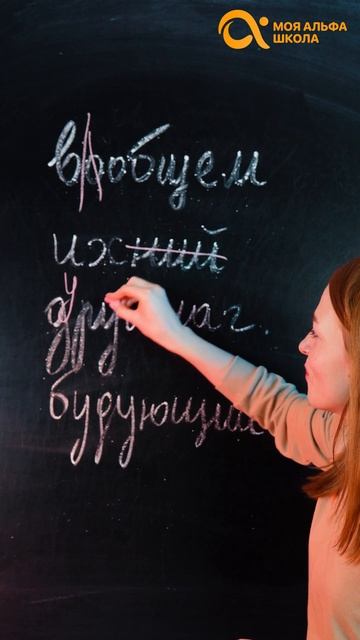 МОЯ АЛЬФА
ШКОЛА
вообщем
ихний
будующий